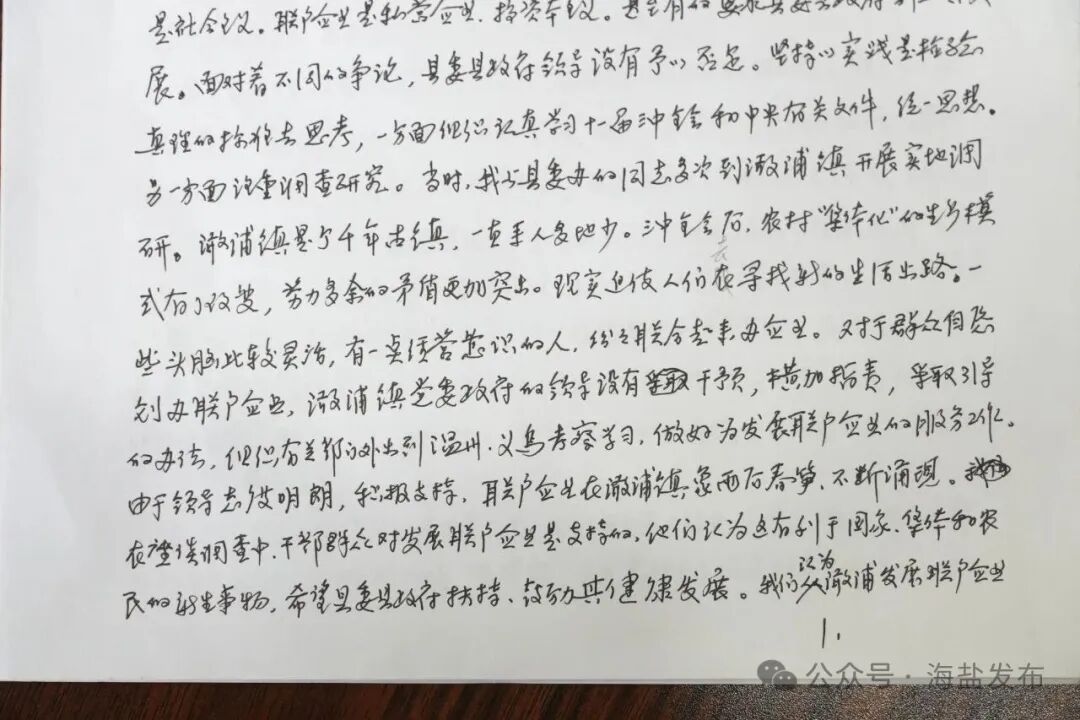 是社会主义。联户企业是私营企业、搞资本主义。甚至有的要求县委县政府
展。面对着不同的争论，县委县政府领导没有予以否定。坚持以实践是检验
真理的标准去思考，一方面组织认真学习十一届三中全会和中央有关文件，统一思想。
另一方面注重调查研究。当时，我与县委办的同志多次到澉浦镇开展实地调
研。澉浦镇是个千年古镇，一直来人多地少。三中全会后，农村“集体化”的生产模
式有了改变，劳力多余的矛盾更加突出。现实迫使人们去寻找新的生活出路。一
些头脑比较灵活，有一点经营意识的人，纷纷联合起来办企业。对于群众自愿
创办联户企业，澉浦镇党委政府的领导没有干预，横加指责，采取引导
的办法，组织有关部门外出到温州、义乌考察学习，做好为发展联户企业的服务工作。
由于领导态度明朗，积极支持，联户企业在澉浦镇象雨后春笋、不断涌现。
在座谈调查中，干部群众对发展联户企业是支持的，他们认为这有利于国家、集体和农
民的新生事物，希望县委县政府扶持、鼓励其健康发展。我们认为澉浦发展联户企业
1.
公众号·海盐发布